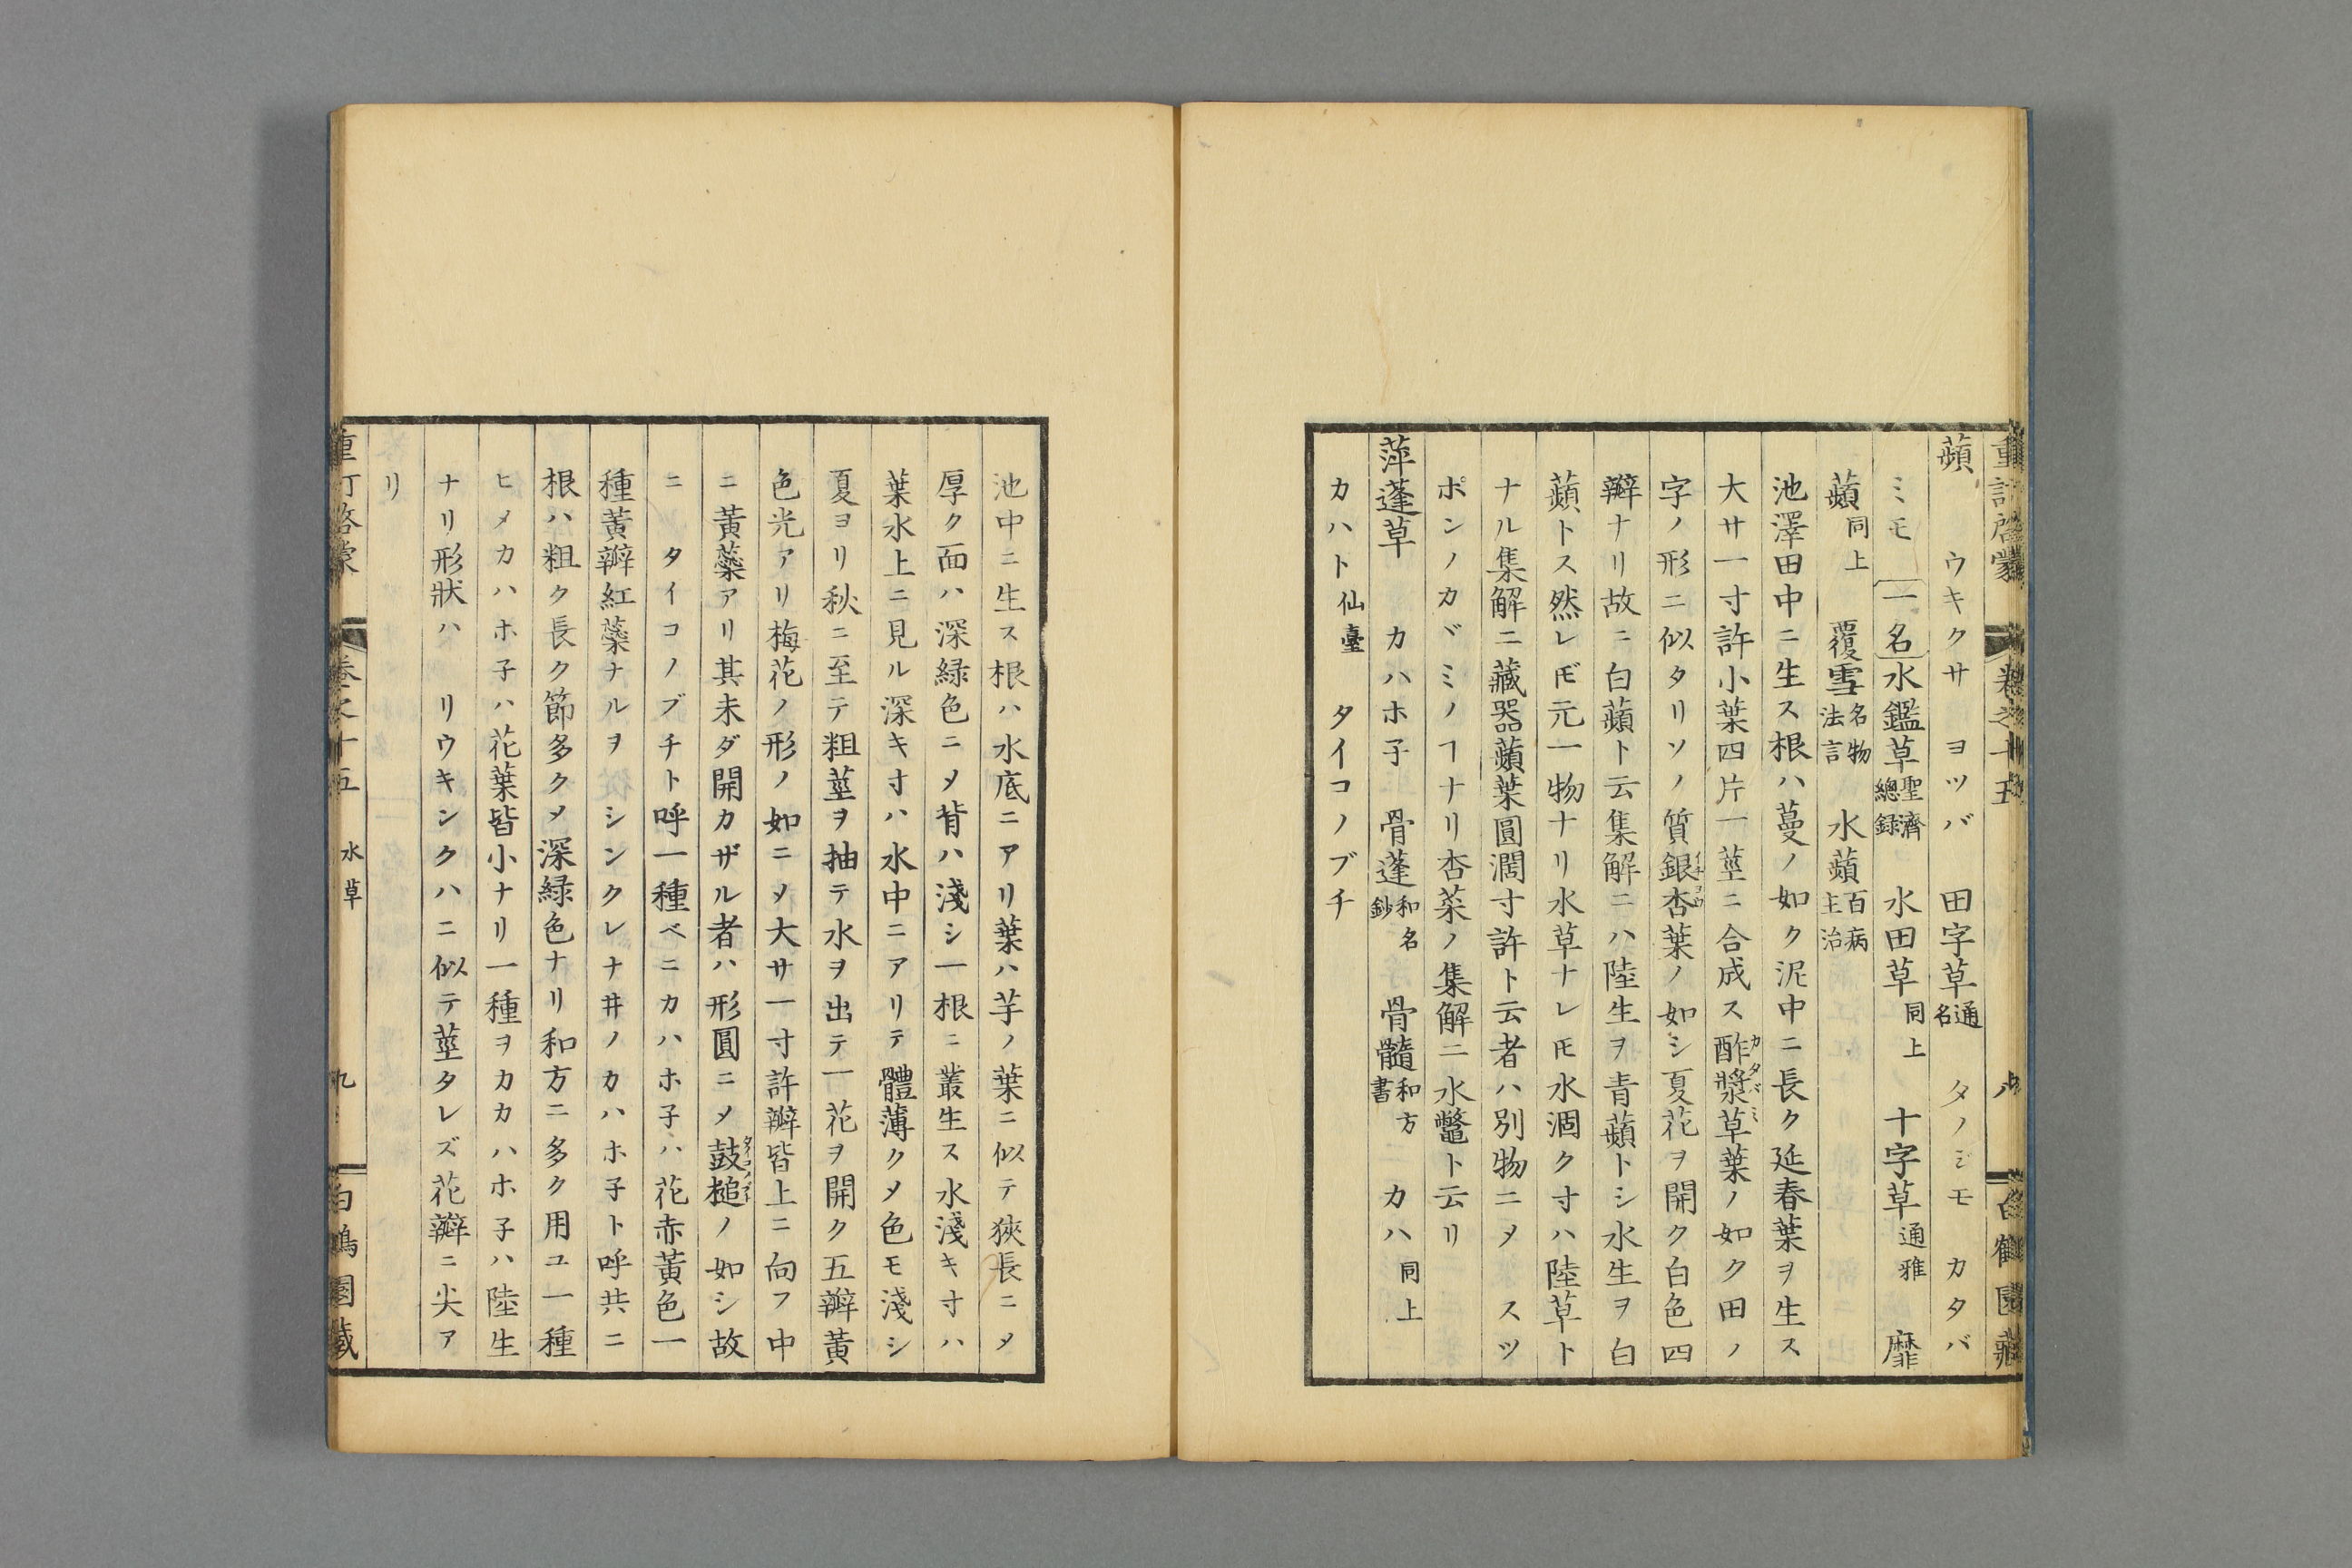 重訂啓蒙 卷之十五 八 白鶴園藏
蘋 ウキクサ ヨツバ 田字草通名 タノジモ カタバ
ミモ 一名水鑑草聖濟總録 水田草同上 十字草通雅 䕷
蘋同上 覆雪名物法言 水蘋百病主治
池澤田中ニ生ス根ハ蔓ノ如ク泥中ニ長ク延春葉ヲ生ス
大サ一寸許小葉四片一莖ニ合成ス酢漿草カタバミ葉ノ如ク田ノ
字ノ形ニ似タリソノ質銀杏イチヨウ葉ノ如シ夏花ヲ開ク白色四
瓣ナリ故ニ白蘋ト云集解ニハ陸生ヲ青蘋トシ水生ヲ白
蘋トス然レ𪜈元一物ナリ水草ナレ𪜈水涸ク寸ハ陸草ト
ナル集解ニ藏器蘋葉圓濶寸許ト云者ハ別物ニ〆 スツ
ポンノカヾミノヿナリ杏菜ノ集解ニ水鼈ト云リ
萍蓬草 カハホ子 骨蓬和名鈔 骨髓和方書 カハ同上
カハト仙臺 タイコノブチ
池中ニ生ス根ハ水底ニアリ葉ハ芋ノ葉ニ似テ狹長ニ〆
厚ク面ハ深緑色ニ〆背ハ淺シ一根ニ叢生ス水淺キ寸ハ
葉水上ニ見ル深キ寸ハ水中ニアリテ體薄ク〆色モ淺シ
夏ヨリ秋ニ至テ粗莖ヲ抽テ水ヲ出テ一花ヲ開ク五瓣黄
色光アリ梅花ノ形ノ如ニ〆大サ一寸許瓣皆上ニ向フ中
ニ黄蘂アリ其未ダ開カザル者ハ形圓ニ〆鼓槌タイコノブチノ如シ故
ニ タイコノブチト呼一種ベニカハホ子ハ花赤黄色一
種黄瓣紅蘂ナルヲ シンクレナ井ノカハホ子ト呼共ニ
根ハ粗ク長ク節多ク〆深緑色ナリ和方ニ多ク用ユ一種
ヒメカハホ子ハ花葉皆小ナリ一種ヲカカハホ子ハ陸生
ナリ形狀ハ リウキンクハニ似テ莖タレズ花瓣ニ尖ア
リ
重訂啓蒙 卷之十五 水草 九 白鶴園藏